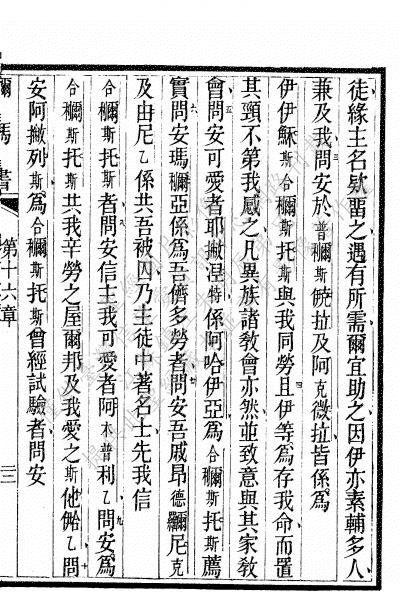 徒緣主名欵畱之遇有所需爾宜助之因伊亦素輔多人
兼及我問安於普穪斯饒拉及阿克微拉皆係爲
伊伊穌斯合穪斯托斯與我同勞且伊等爲存我命而置
其頸不第我感之凡異族諸教會亦然並致意與其家教
會問安可愛者耶撇湼特係阿哈伊亞爲合穪斯托斯薦
實問安瑪穪亞係爲吾儕多勞者問安吾戚昂德囉尼克
及由尼乙係共吾被囚乃主徒中著名士先我信
合穪斯托斯者問安信主我可愛者阿木普利乙問安爲
合穪斯托斯共我辛勞之屋爾邦及我愛之斯他乙問
安阿撇列斯爲合穪斯托斯曾經試驗者問安
瑪書
第十六章
三